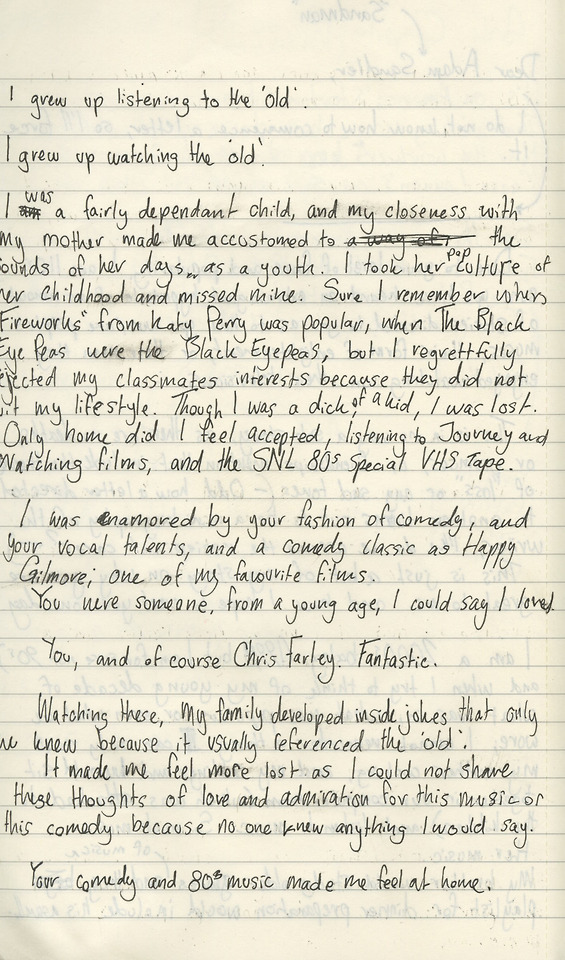 I grew up listening to the 'old'.
I grew up watching the 'old'.
I was a fairly dependant child, and my closeness with
my mother made me accustomed to a way of the
ounds of her days, as a youth. I took her pop culture of
her childhood and missed mine. Sure I remember when
Fireworks" from Katy Perry was popular, when The Black
Eye Peas were the Black Eyepeas, but I regrettfully
ejected my classmates interests because they did not
uit my lifestyle. Though I was a dick, of a kid, I was lost.
Only home did I feel accepted, listening to Journey and
Watching films, and the SNL 80s Special VHS Tape.
I was enamored by your fashion of comedy, and
your vocal talents, and a comedy classic as Happy
Gilmore; one of my favourite films.
You were someone, from a young age, I could say I loved.
You, and of course Chris Farley. Fantastic.
Watching these, my family developed inside jokes that only
we knew because it usually referenced the 'old'.
It made me feel more lost as I could not share
these thoughts of love and admiration for this music or
this comedy because no one knew anything I would say.
Your comedy and 80s music made me feel at home.